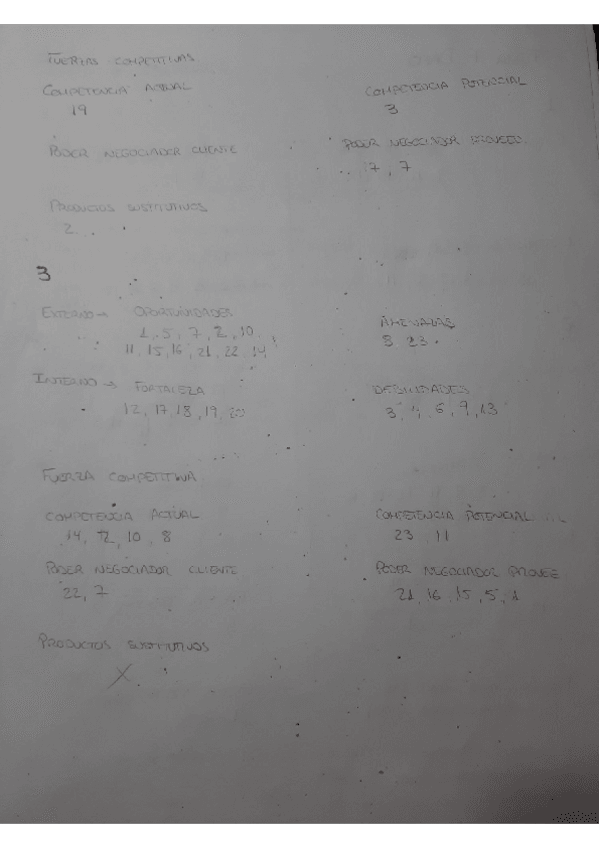 FUERZAS COMPETITIVAS
COMPETENCIA ACTUAL COMPETENCIA POTENCIAL
19 3
PODER NEGOCIADOR CLIENTE PODER NEGOCIADOR PROVEED.
17, 7
PRODUCTOS SUSTITUTIVOS
2
3
EXTERNO → OPORTUNIDADES AMENAZAS
1, 5, 7, 2, 10,
11, 15, 16, 21, 22, 14 8 23
INTERNO → FORTALEZA DEBILIDADES
12, 17, 18, 19, 20 3, 4, 6, 9, 13
FUERZA COMPETITIVA
COMPETENCIA ACTUAL COMPETENCIA POTENCIAL
14, 2, 10, 8 23, 11
PODER NEGOCIADOR CLIENTE PODER NEGOCIADOR PROVEE
22, 7 21, 16, 15, 5, 1
PRODUCTOS SUSTITUTIVOS
X